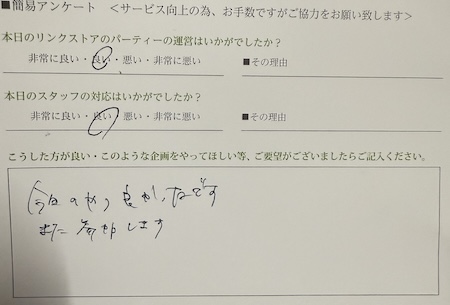 ■簡易アンケート ＜サービス向上の為、お手数ですがご協力をお願い致します＞
本日のリンクストアのパーティーの運営はいかがでしたか？
非常に良い・良い・悪い・非常に悪い ■その理由
本日のスタッフの対応はいかがでしたか？
非常に良い・良い・悪い・非常に悪い ■その理由
こうした方が良い・このような企画をやってほしい等、ご要望がございましたらご記入ください。
今日のやつ良かったです
また参加します